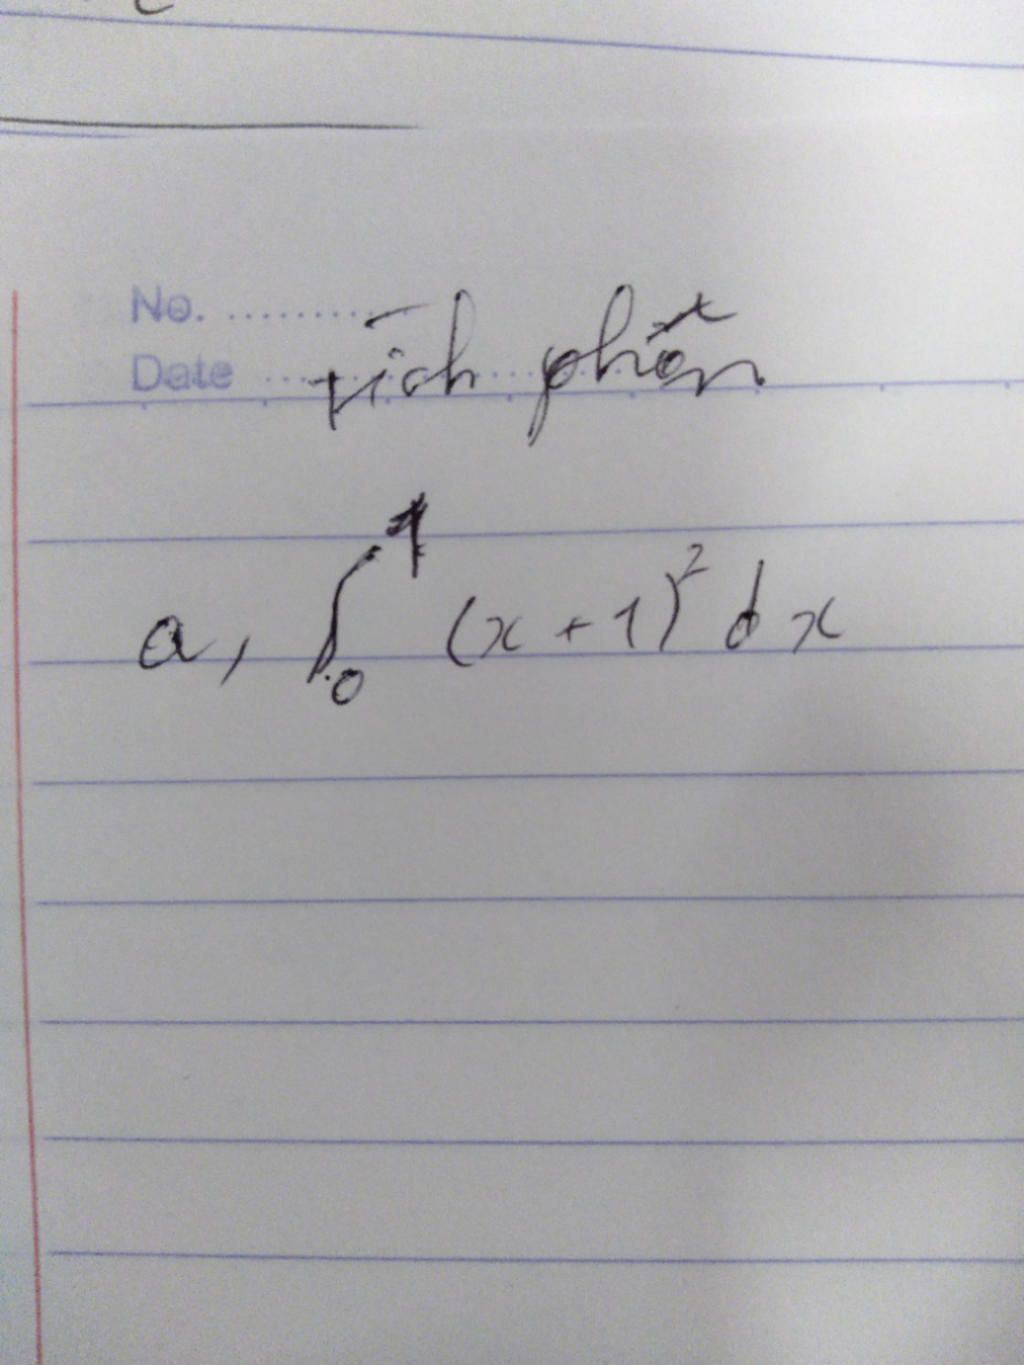 No. ..........
Date ..........
Tích phân
a, ∫₀¹ (x + 1)² dx